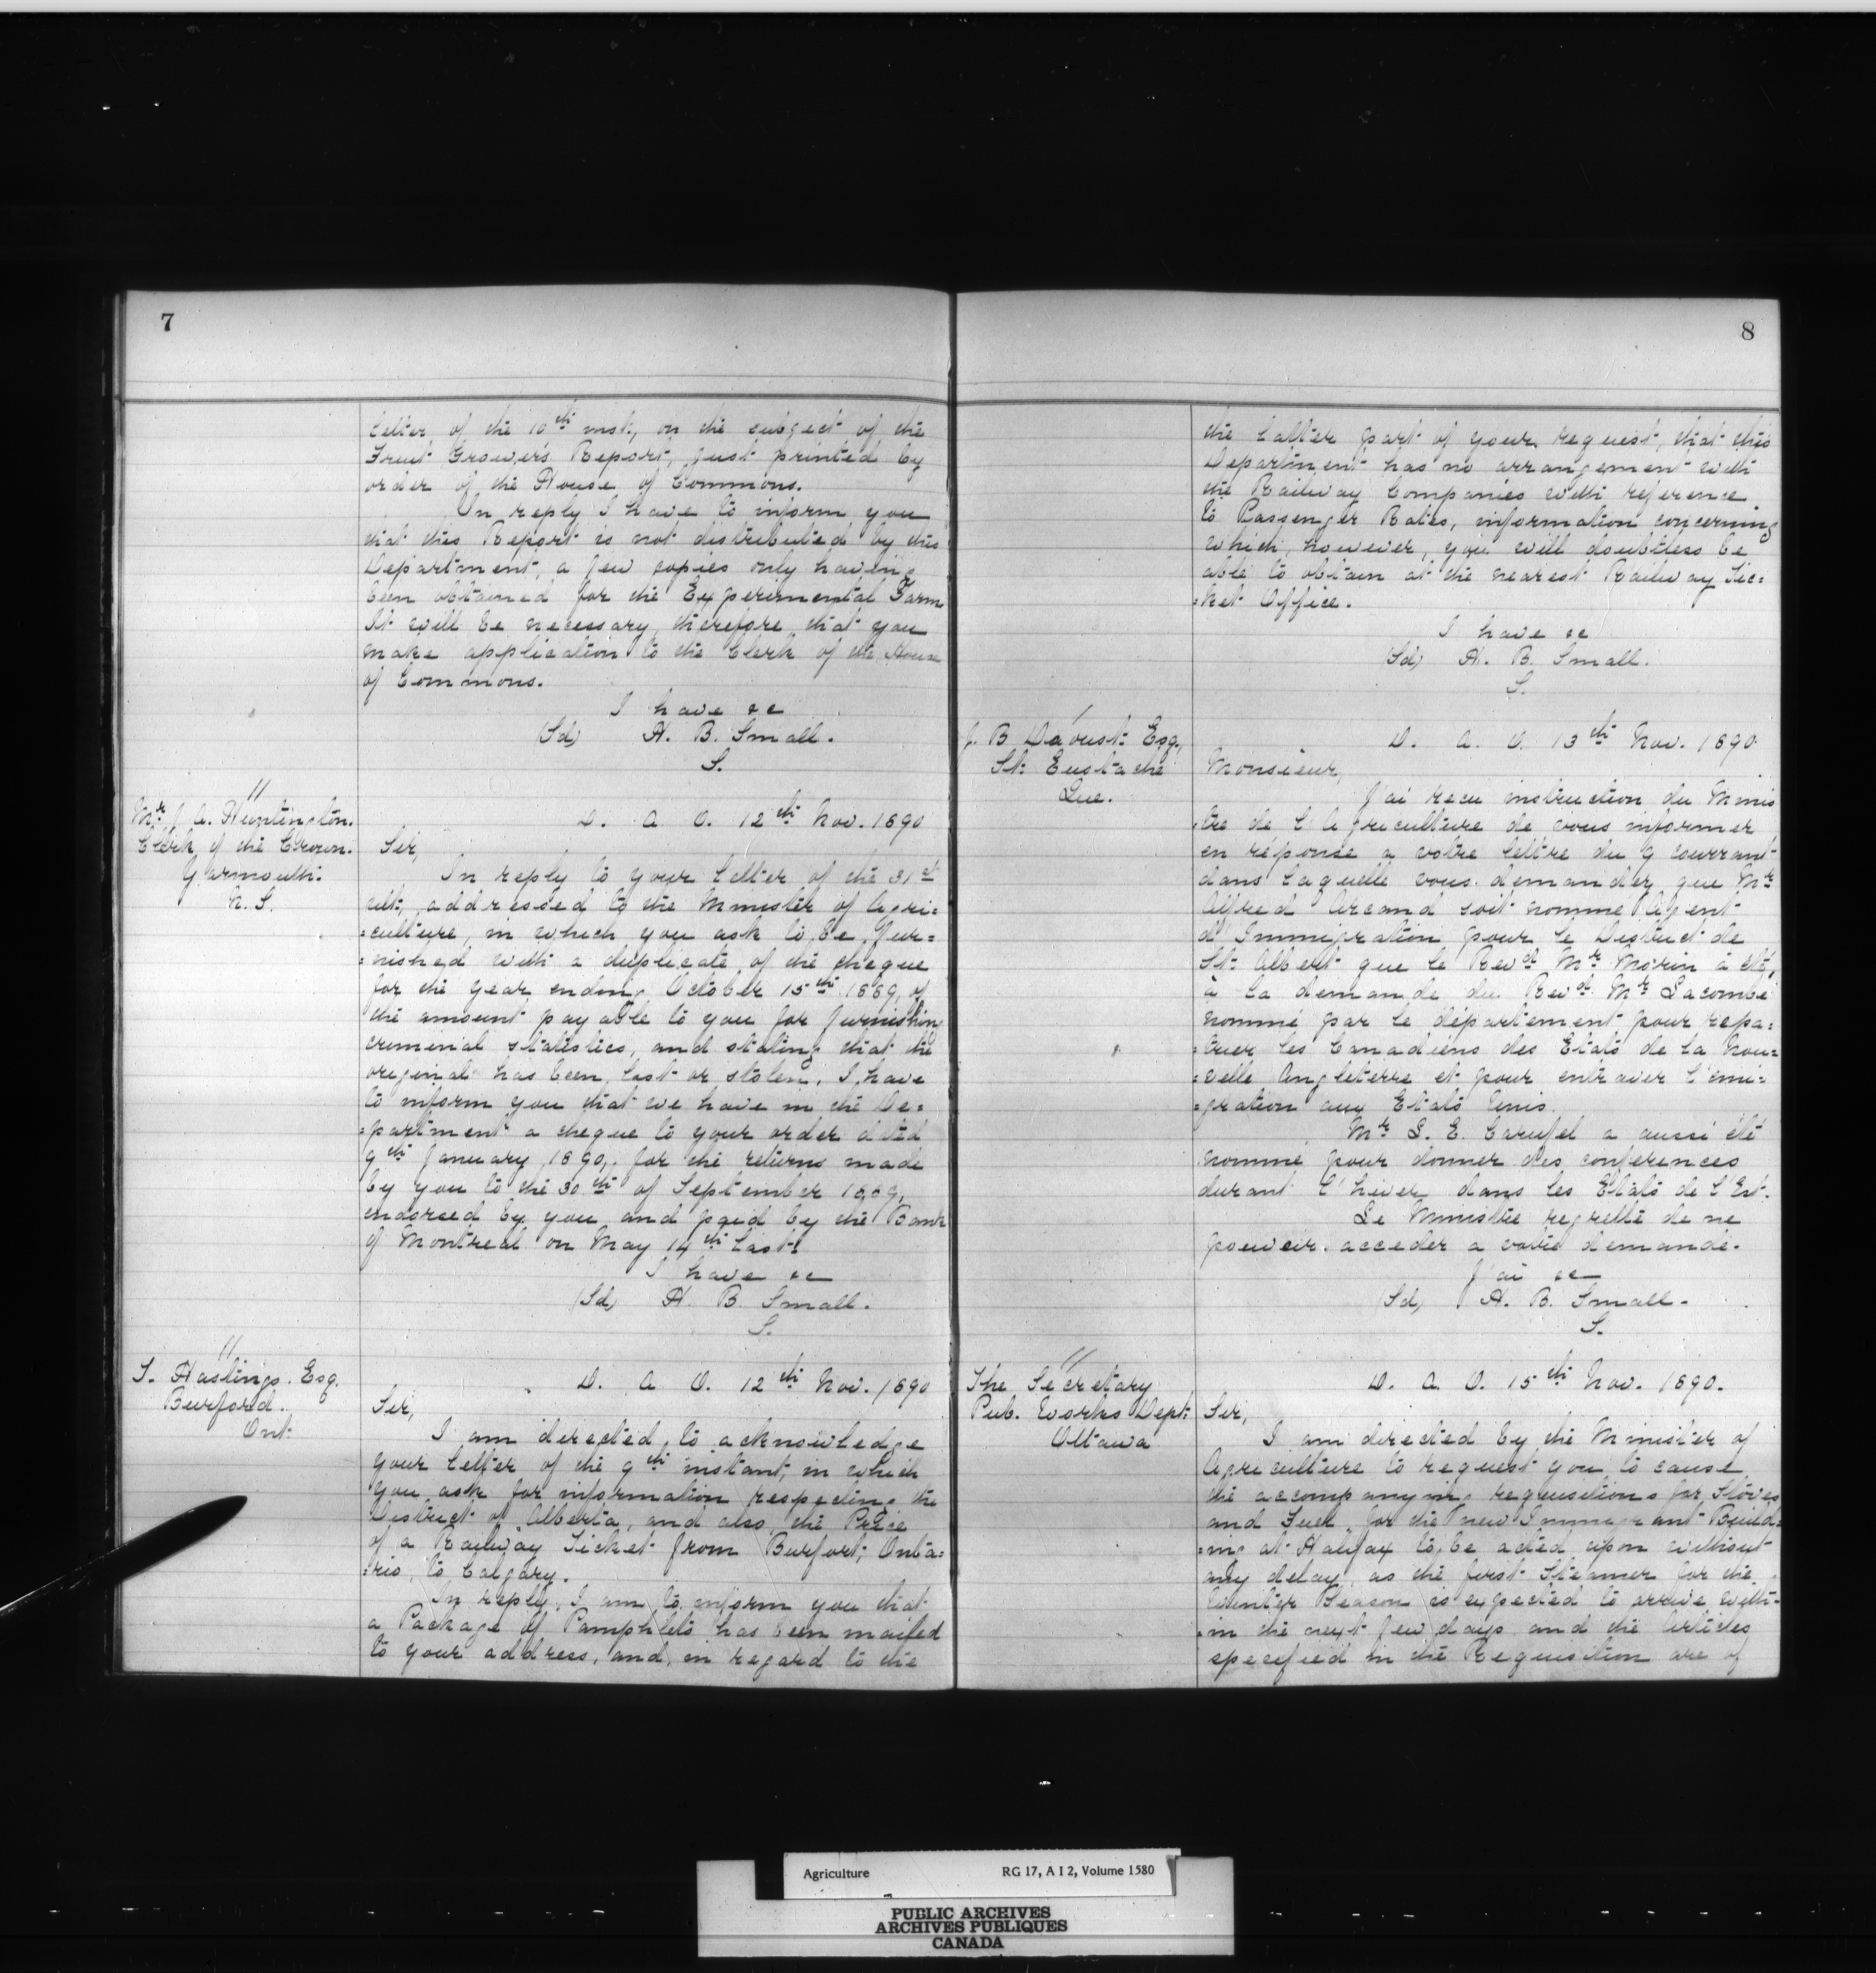 7
letter of the 10th inst, on the subject of the
Fruit Grower's Report, just printed by
order of the House of Commons.
In reply I have to inform you
that this Report is not distributed by this
Department, a few copies only having
been obtained for the Experimental Farm.
It will be necessary therefore that you
make application to the Clerk of the House
of Commons.
I have &c
(Sd) H. B. Small.
S.
"
Mr J. A. Huntington.
Clerk of the Crown.
Yarmouth.
N. S.
D. A. O. 12th Nov. 1890
Sir,
In reply to your letter of the 31st
ult, addressed to the Minister of Agri=
=culture, in which you ask to be fur=
=nished with a duplicate of the cheque
for the year ending October 15th 1889, of
the amount payable to you for furnishing
criminal statistics, and stating that the
original has been lost or stolen, I have
to inform you that we have in the De=
=partment a cheque to your order dated
9th January, 1890, for the returns made
by you to the 30th of September 1889,
endorsed by you and paid by the Bank
of Montreal on May 14th last.
I have &c
(Sd) H. B. Small.
S.
"
T. Hastings. Esq.
Burford.
Ont.
D. A. O. 12th Nov. 1890
Sir,
I am directed to acknowledge
your letter of the 9th instant, in which
you ask for information respecting the
District of Alberta, and also the Price
of a Railway Ticket from Burfort, Onta=
=rio, to Calgary.
In reply, I am to inform you that
a Package of Pamphlets has been mailed
to your address, and, in regard to the
8
the latter part of your request, that this
Department has no arrangement with
the Railway Companies with reference
to Passenger Rates, information concerning
which, however, you will doubtless be
able to obtain at the nearest Railway Tic=
=ket Office.
I have &c
(Sd) H. B. Small.
S.
J. B. Daoust Esq.,
St. Eustache
Que.
D. A. O. 13th Nov. 1890.
Monsieur,
J'ai recu instruction du Minis
=tre de l'Agriculture de vous informer
en réponse a votre lettre du 9 courrant
dans laquelle vous demandez que Mr
Alfred Arcand soit nomme Agent
d'Immigration pour le District de
St. Albert que le Revd Mr Morin à été,
à la demande du Revd Mr Lacombe
nommé par le département pour repa=
=trier les Canadiens des Etats de la Nou=
=velle Angleterre et pour entraver l'emi=
=gration aux Etats Unis.
Mr L. E. Carufel a aussi été
nommé pour donner des conferences
durant l'hiver dans les Etats de l'Est.
Le Ministre regrette de ne
pouvoir acceder a votre demande.
J'ai &c
(Sd) H. B. Small.
S.
"
The Secretary
Pub. Works Dept.
Ottawa
D. A. O. 15th Nov. 1890.
Sir,
I am directed by the Minister of
Agriculture to request you to cause
the accompanying requisitions for Stoves
and Fuel for the new Immigrant Build=
=ing at Halifax to be acted upon without
any delay, as the first Steamer for the
Winter Season is expected to arrive with=
=in the next few days and the Articles
specified in the Requisition are of
Agriculture RG 17, A I 2, Volume 1580
PUBLIC ARCHIVES
ARCHIVES PUBLIQUES
CANADA